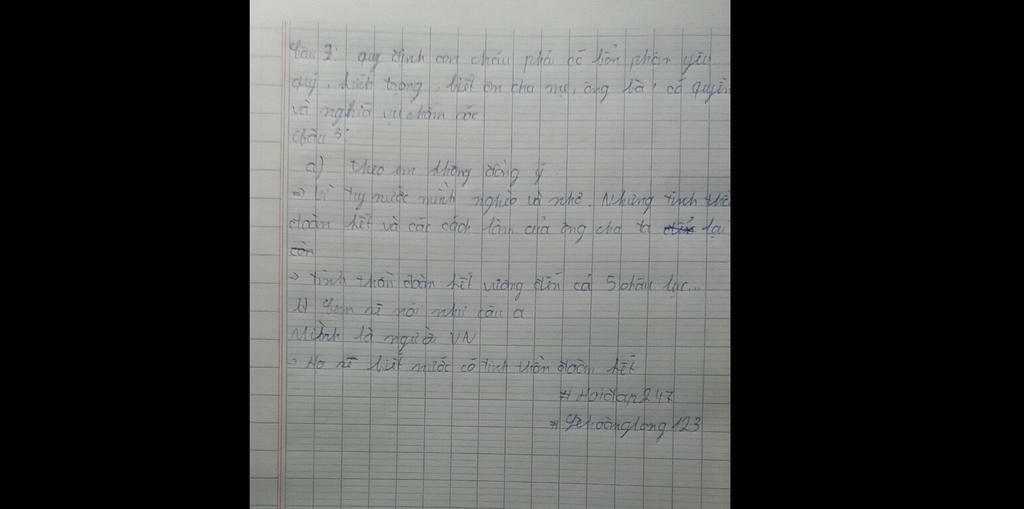 Câu 2: quy định con cháu phải có bổn phận yêu
quý, kính trọng, biết ơn cha mẹ, ông bà, có quyền
và nghĩa vụ chăm sóc
Câu 3:
a) theo em không đồng ý
→ Vì tuy nước mình nghèo và nhỏ. Nhưng tinh thần
đoàn kết và các cách làm của ông cha ta lại
→ tinh thần đoàn kết vương đến cả 5 châu lục...
b) Em sẽ nói như câu a
Mình là người VN
→ Họ sẽ biết nước có tinh thần đoàn kết
# Hoidap247